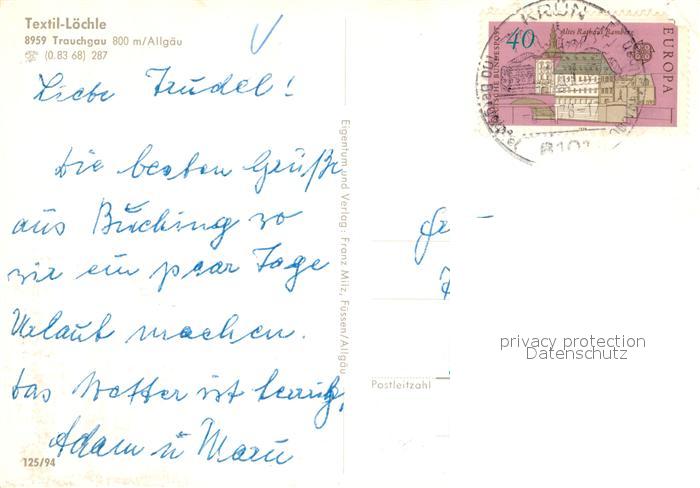 Textil-Löchle
8959 Trauchgau 800 m/Allgäu
☎ (0.83 68) 287
Liebe Trudel!
Die besten Grüße
aus Buching wo
wir ein paar Tage
Urlaub machen.
Das Wetter ist
Adam u
125/94
Eigentum und Verlag: Franz Milz, Füssen/Allgäu
KRÜN
8101
40
Altes Rathaus Bamberg
DEUTSCHE BUNDESPOST
EUROPA
Postleitzahl
privacy protection
Datenschutz